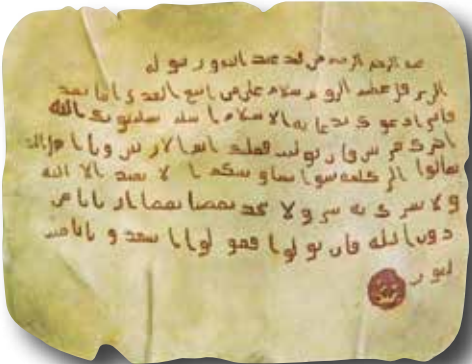 الرحمن الرحيم من محمد عبد الله ورسوله
الى هرقل عظيم الروم سلام على من اتبع الهدى اما بعد
فانى ادعوك بدعاية الاسلام اسلم تسلم يوتك الله
اجرك مرتين فان توليت فعليك اثم الاريسين ويا اهل
تعالوا الى كلمة سوا بيننا وبينكم الا نعبد الا الله
ولا نشرك به ولا يتخذ بعضنا بعضا اربابا من
دون الله فان تولوا فقولوا